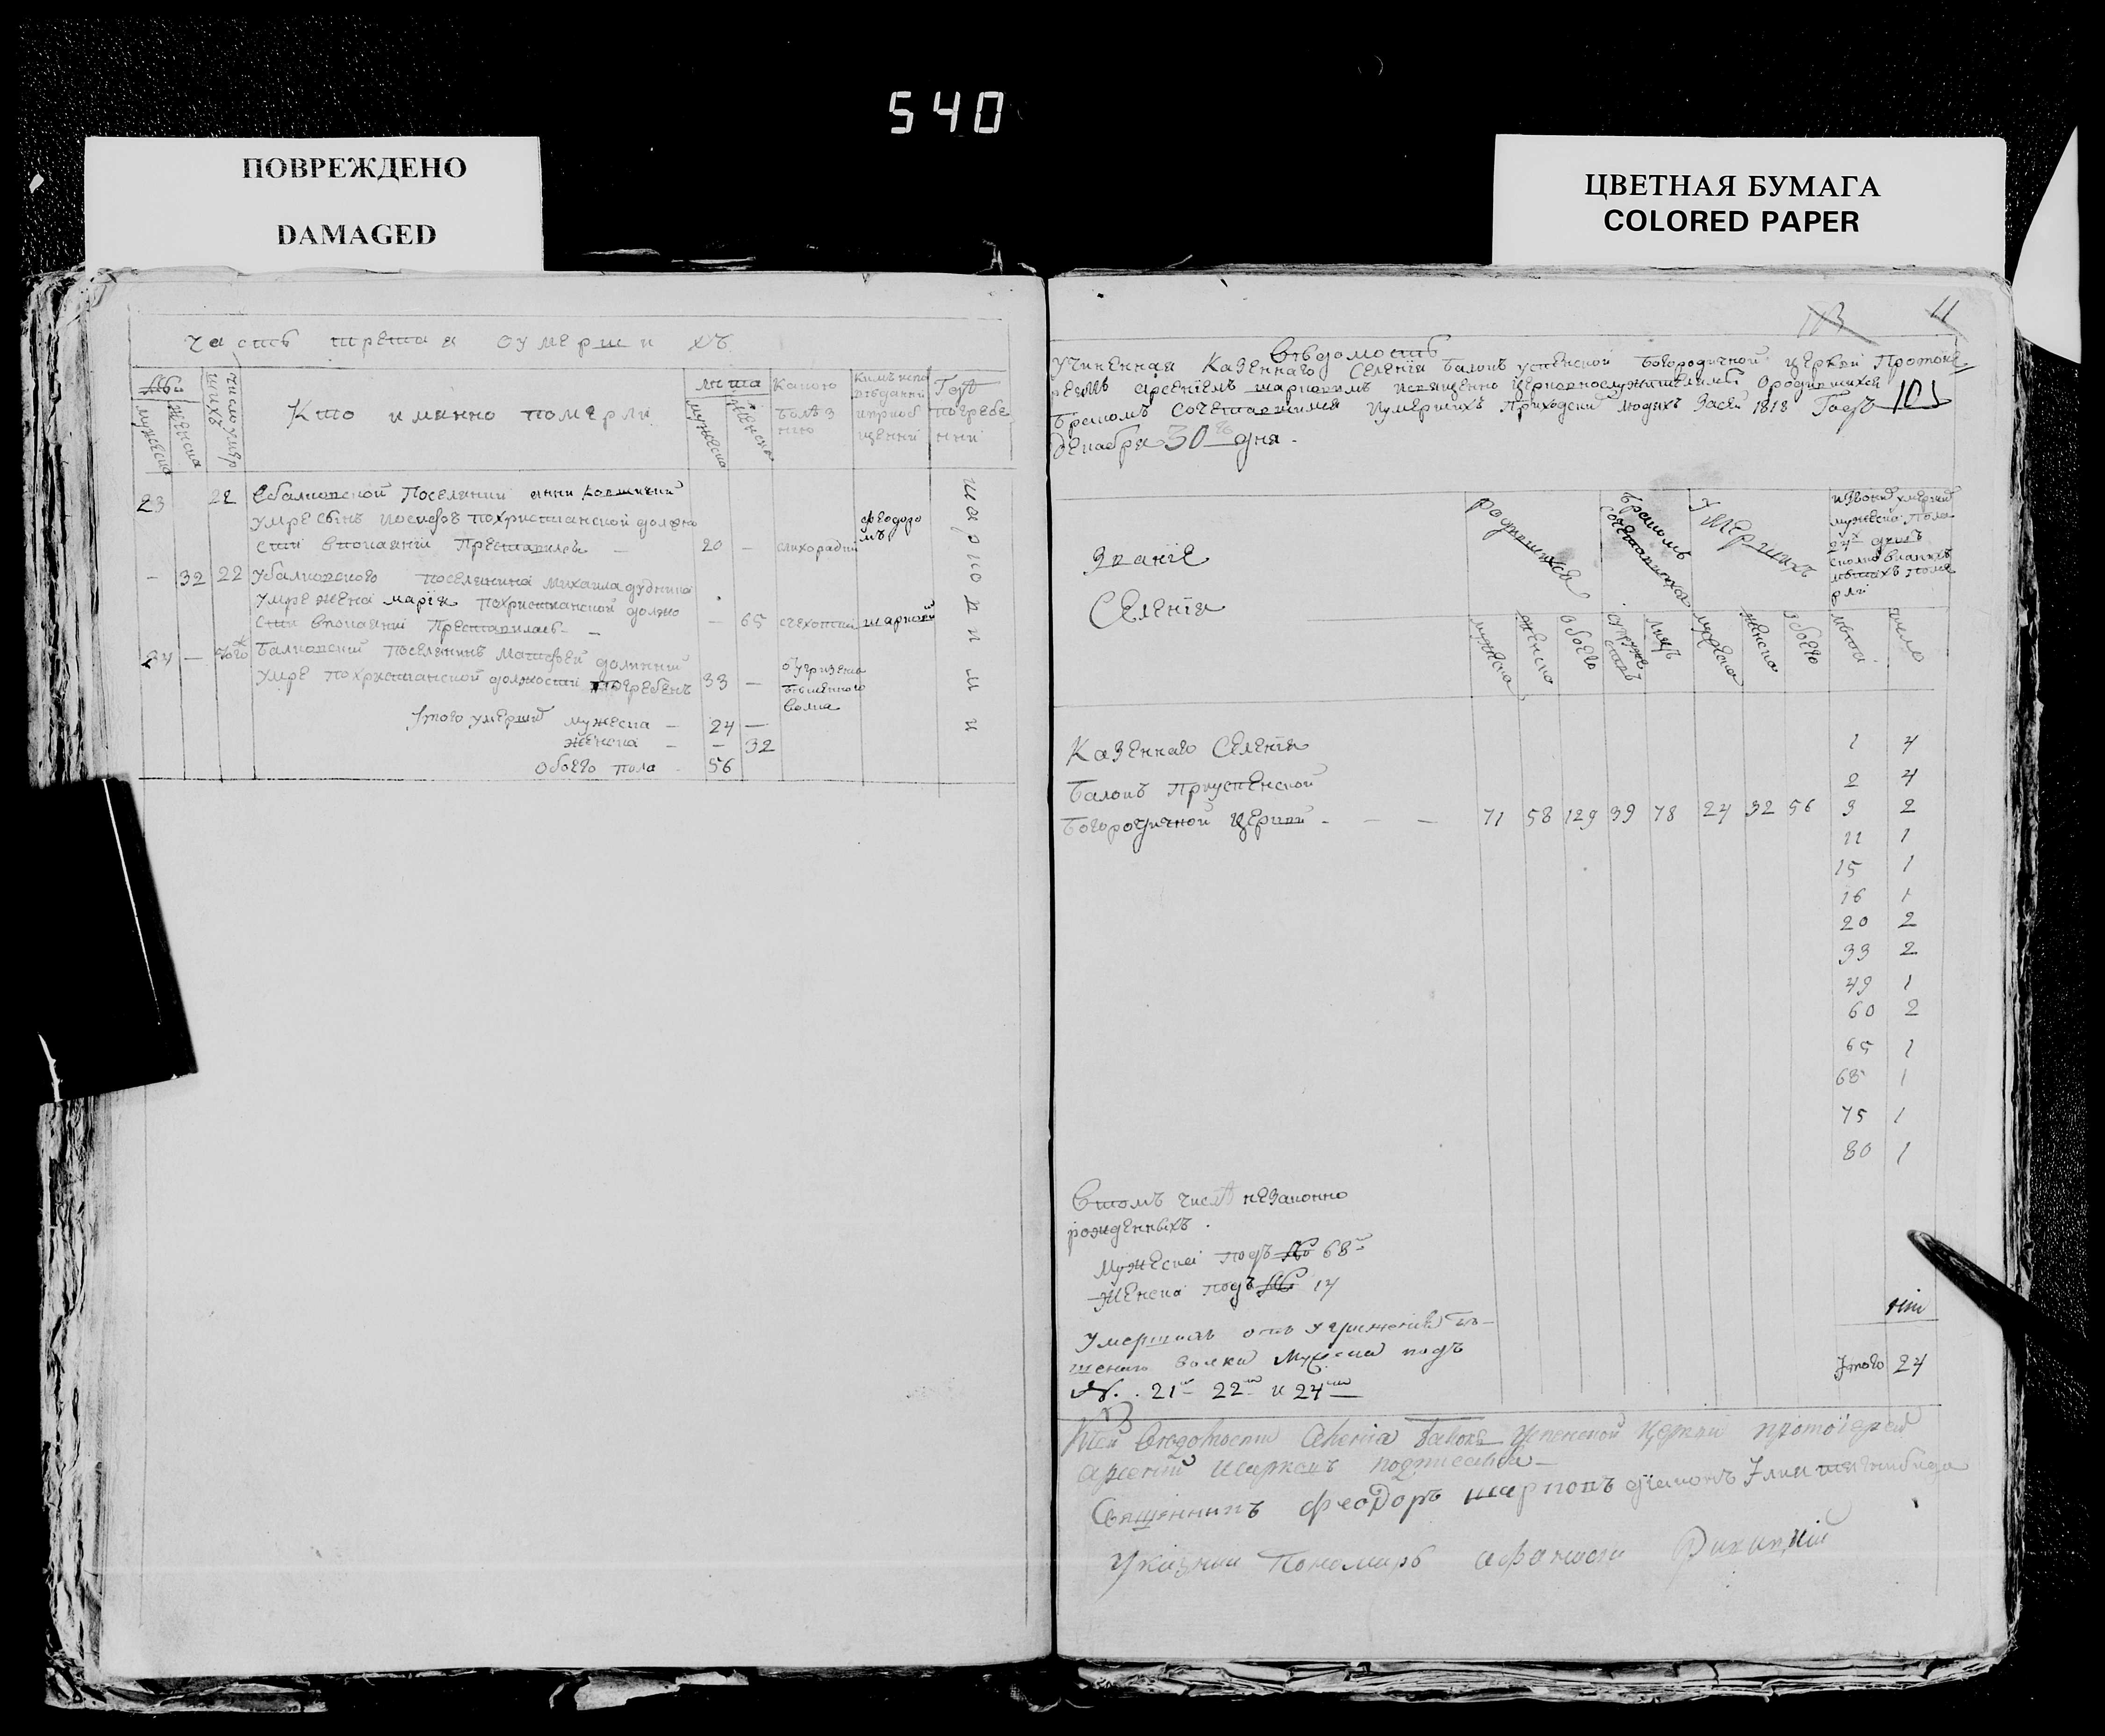 540
ПОВРЕЖДЕНО
DAMAGED
ЦВЕТНАЯ БУМАГА
COLORED PAPER
часть третая оумершихъ
мужеска
женска
число умер
шихъ
Кто именно померли
лѣта
мужеска
женска
Какою
болѣз
нію
Кимъ испо
вѣданы
и приоб
щенны
Гдѣ
погребе
нны
23 22 Сбалковской Поселянки анни
умре сынъ иосифъ похристианской должно
сти впокаянии Преставилсь — 20 — слихорадки феодоро
мъ
— 32 22 Убалковского поселянина михаила дудника
умре жена марія похристианской должно
сти впокаянии Преставилась — — 65 счехотки шарков
24 — Балковский поселянинъ Матфей
умре похристианской должности погребенъ 33 — оугризена
бѣшенного
волка
Итого умершихъ мужеска — 24 —
женска — — 32
обоего пола 56
шарковими
11
Вѣдомость
Учиненная Казеннаго Селенія Балокъ успенской Богородичной церкви Протоие
реемъ арсеніемъ шарковимъ исвященно церковнослужителями ородившихся
бракомъ Сочетавшихся иумершихъ Приходскихъ людяхъ Засей 1818 Годъ 101
декабря 30го дня.
Званіе
Селенія
родившихся
бракомъ
сочетавшихся
умершихъ
мужеска пола
24 душъ
мужеска
женска
обоего
лицъ
мужеска
женска
обоего
число
Казеннаго Селенія
Балокъ Приуспенской
Богородичной церкви - — — 71 58 129 39 78 24 32 56
1 4
2 4
3 2
11 1
15 1
16 1
20 2
33 2
49 1
60 2
65 1
68 1
75 1
80 1
Втомъ числѣ незаконно
рожденныхъ.
Мужеска подъ № 68
Женска подъ № 14
Умершихъ отъ угризенія бѣ-
шеного волка мужеска подъ
№. 21 22 и 24
Итого 24
Ксей Ведомости Селенія Балокъ Успенской Церкви протоіерей
арсений Шарковъ подписался
Священникъ феодоръ шарковъ діаконъ
Указний Пономарь афанасий